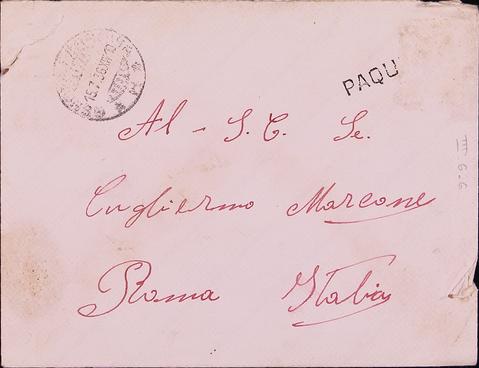 15.7.36.XIV
PAQU
Al - S. C. Se.
Gugliermo Marcone
Roma Italia
III 6.6